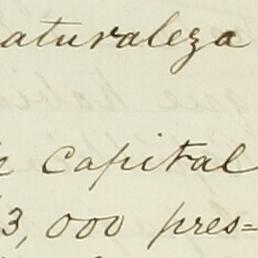 naturaleza
capital
3,000 pres=